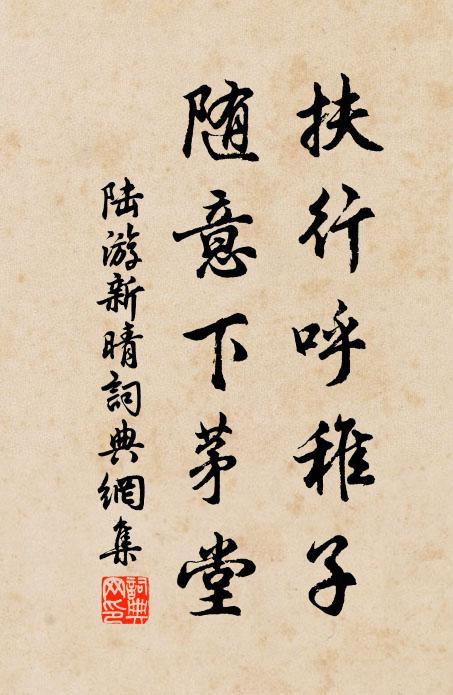 扶行呼稚子
随意下茅堂
陆游新晴詞典網集
詞典网印